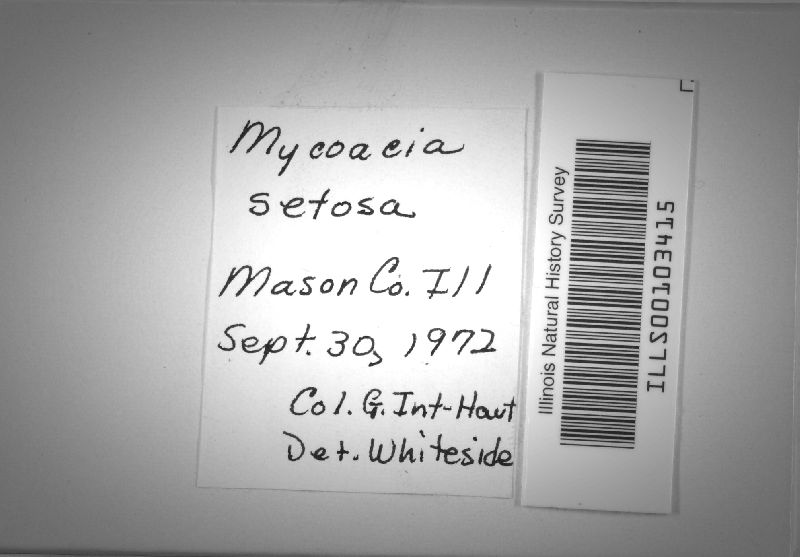 Mycoacia
setosa
Mason Co. Ill
Sept. 30, 1972
Col. G. Int-Hout
Det. Whiteside
Illinois Natural History Survey
ILLS00103415